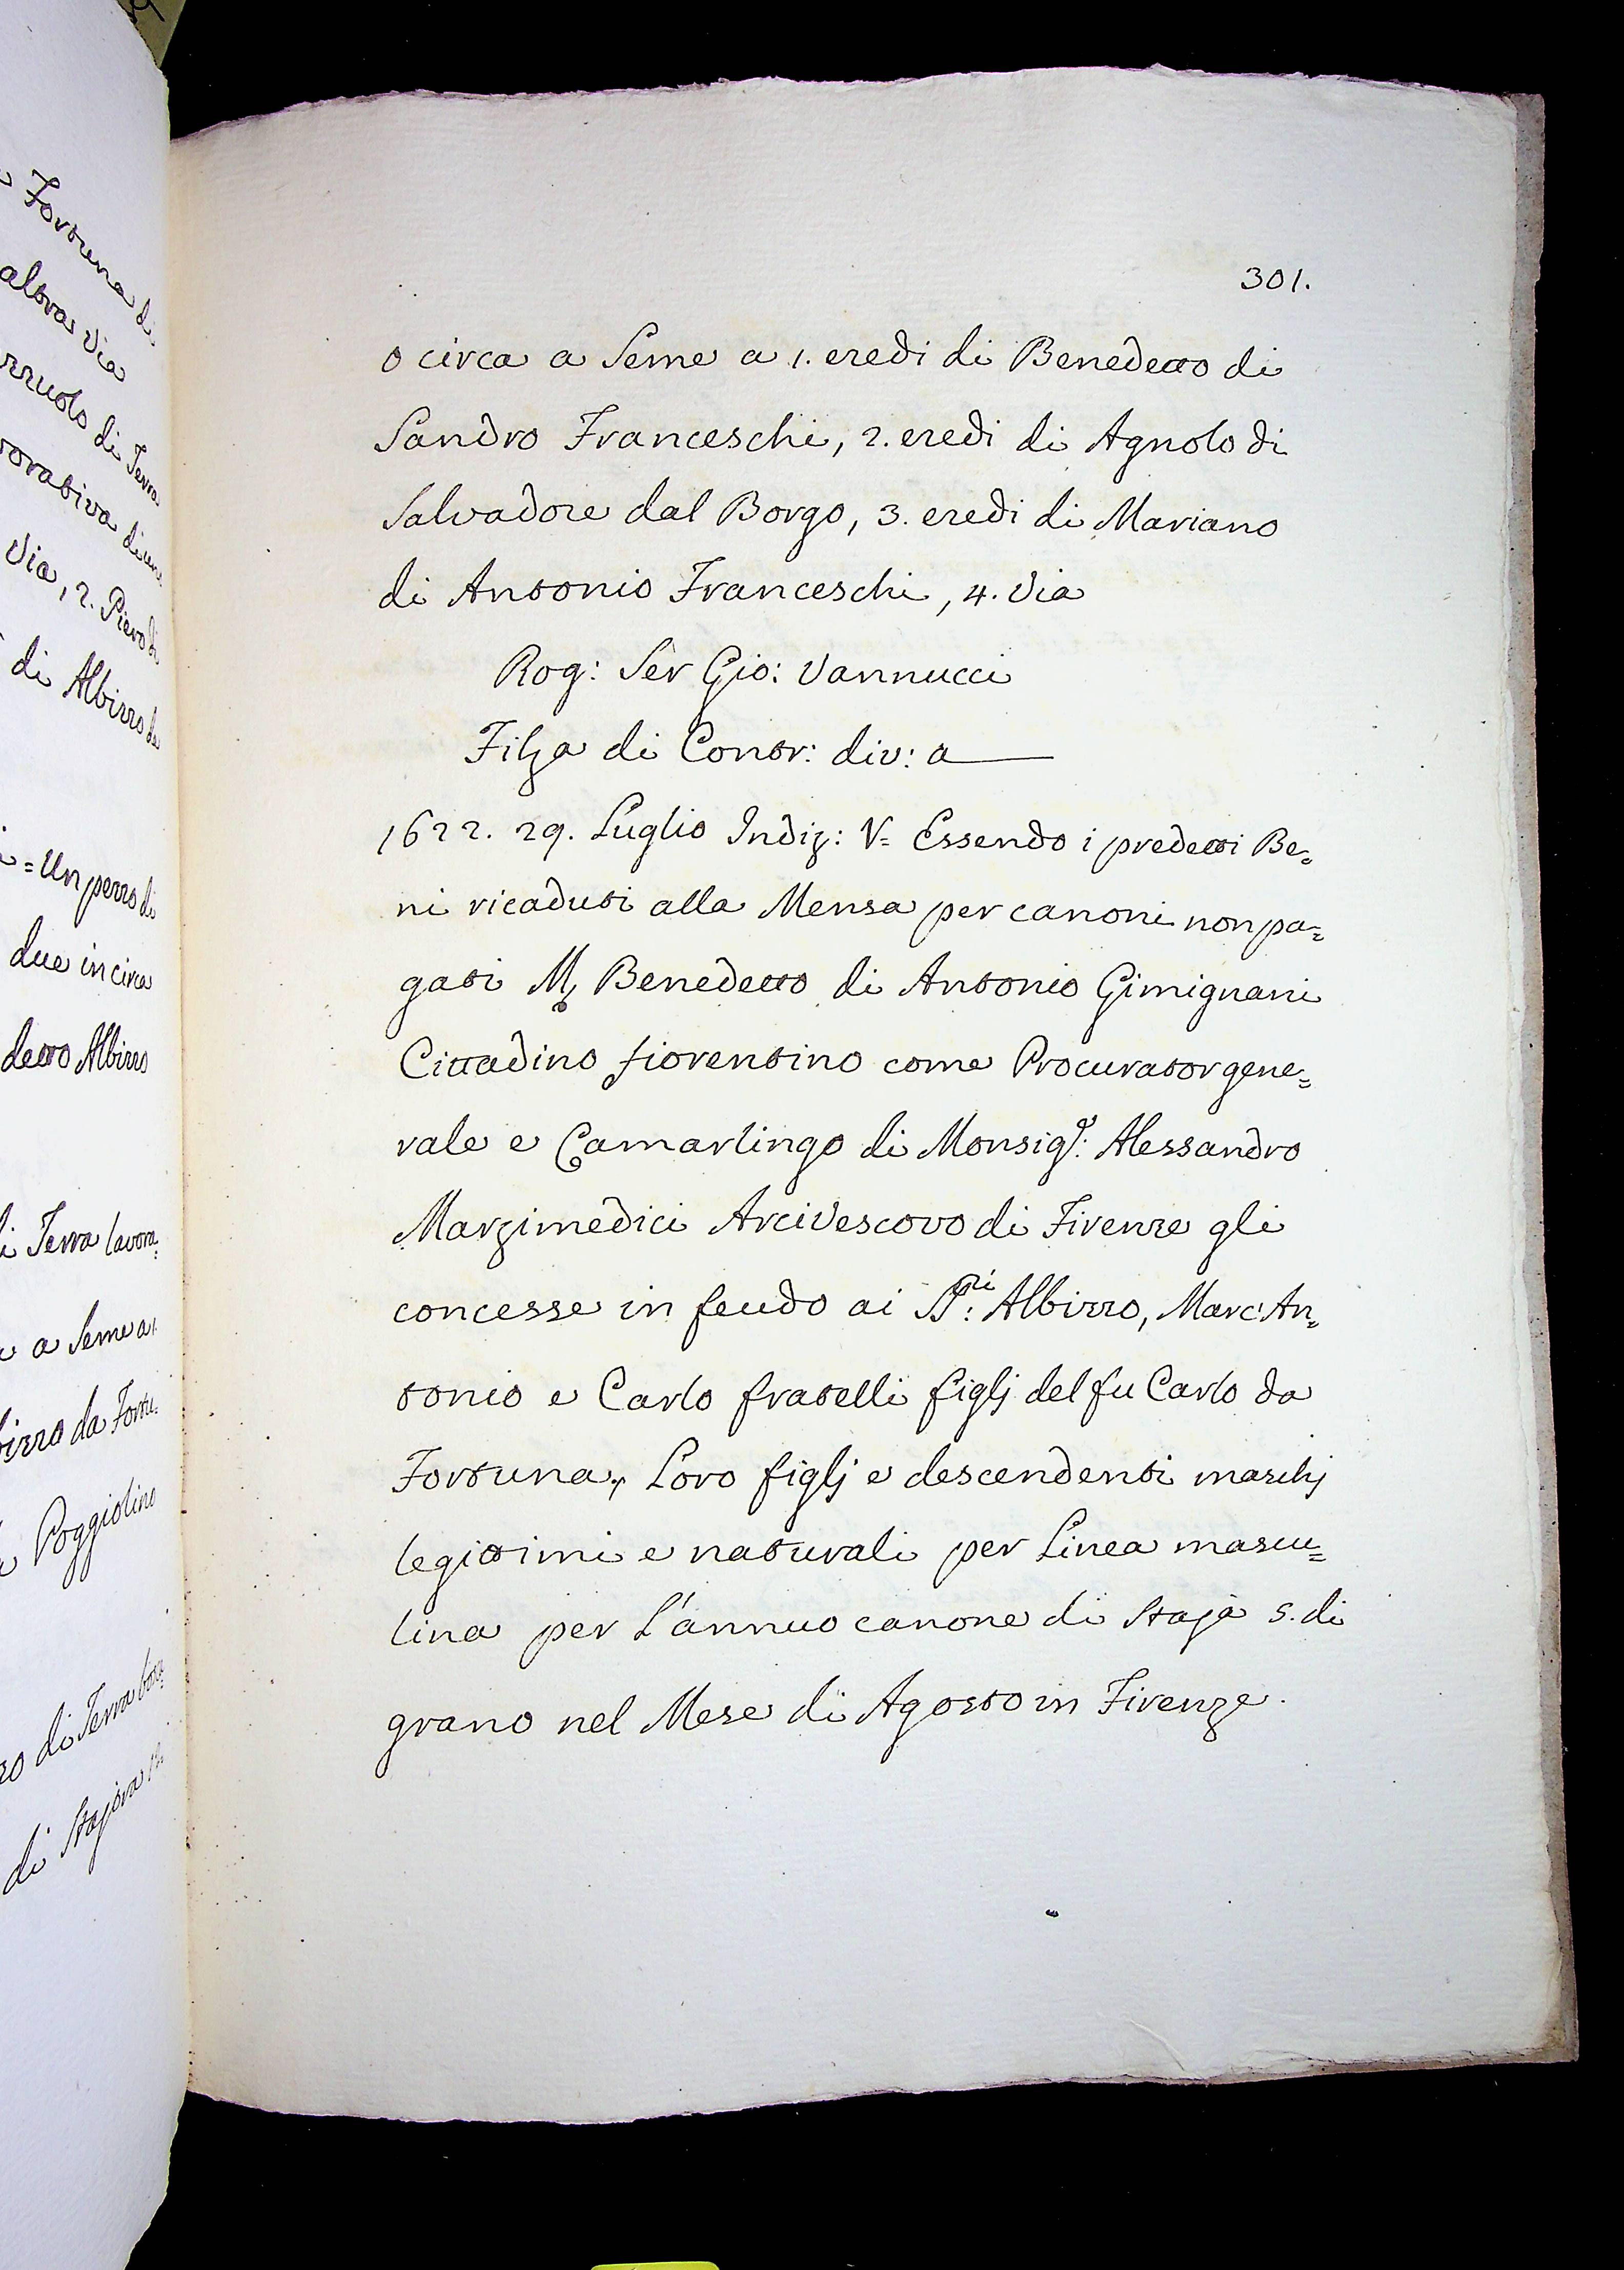 301.
o circa a Seme a 1. eredi di Benedetto di
Sandro Franceschi, 2. eredi di Agnolo di
Salvadore dal Borgo, 3. eredi di Mariano
di Antonio Franceschi, 4. Via
Rog: Ser Gio: Vannucci
Filza di Contr: div: a
1622. 29. Luglio Indiz: V= Essendo i predetti Be=
ni ricaduti alla Mensa per canoni non pa=
gati M. Benedetto di Antonio Gimignani
Cittadino fiorentino come Procurator gene=
rale e Camarlingo di Monsigr: Alessandro
Marzimedici Arcivescovo di Firenze gli
concesse in feudo ai SSri: Albizzo, Marc'An=
tonio e Carlo fratelli figlj del fu Carlo da
Fortuna, Loro figlj e descendenti maschj
legittimi e naturali per Linea mascu=
lina per L'annuo canone di staja 5. di
grano nel Mese di Agosto in Firenze.
Fortuna di
altra via
di Terra
Via, 2. Piero di
di Albizzo de
= Un pezzo di
due in circa
detto Albizzo
di Terra lavora=
a Seme a 1.
da Fortu=
Poggiolino
di Terra
di